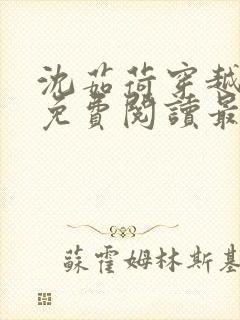 沈茹荷穿越
免費閱讀最
蘇霍姆林斯基